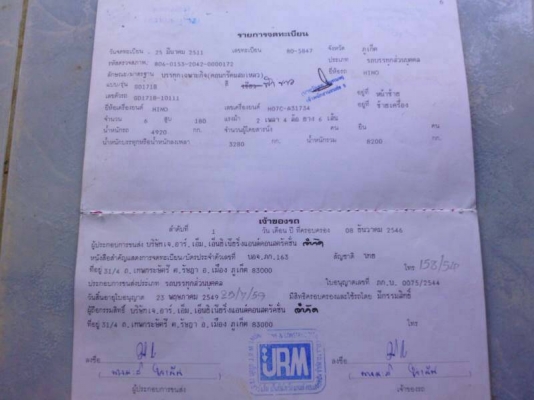 รายการจดทะเบียน
วันจดทะเบียน 25 มีนาคม 2511 เลขทะเบียน 80-5847 จังหวัด ภูเก็ต
รหัสตรวจสภาพ 806-0153-2042-0000171 ประเภท รถบรรทุกส่วนบุคคล
ลักษณะ/มาตรฐาน บรรทุกเฉพาะกิจ(คอนกรีตผสมเหลว) สี ฟ้า ขาว ยี่ห้อรถ HINO
แบบ/รุ่น GD171B
เลขตัวรถ GD171B-10111 อยู่ที่ หน้าซ้าย
ยี่ห้อเครื่องยนต์ HINO เลขเครื่องยนต์ H07C-A31734 อยู่ที่ ข้างเครื่อง
จำนวน 6 สูบ 180 แรงม้า 2 เพลา 4 ล้อ ยาง 6 เส้น
น้ำหนักรถ 4920 กก. จำนวนผู้โดยสารนั่ง คน ยืน คน
น้ำหนักบรรทุกหรือน้ำหนักลงเพลา 3280 กก. น้ำหนักรวม 8200 กก.
เจ้าของรถ
ลำดับที่ 1 วัน เดือน ปี ที่ครอบครอง 08 ธันวาคม 2546
ผู้ประกอบการขนส่ง บริษัทเจ.อาร์.เอ็ม.เอ็นยิเนียริ่งแอนด์คอนสตรัคชั่น จำกัด
หนังสือสำคัญแสดงการจดทะเบียน/บัตรประจำตัวเลขที่ บอจ.ภก.162 สัญชาติ ไทย
ที่อยู่ 31/4 ถ.เทพกระษัตรี ต.รัษฎา อ.เมือง ภูเก็ต 83000 โทร
ประกอบการขนส่งประเภท รถบรรทุกส่วนบุคคล ใบอนุญาตเลขที่ ภก.บ. 0075/2544
วันสิ้นอายุใบอนุญาต 22 พฤษภาคม 2549 มีสิทธิครอบครองและใช้รถโดย มีกรรมสิทธิ์
ผู้ถือกรรมสิทธิ์ บริษัทเจ.อาร์.เอ็ม.เอ็นยิเนียริ่งแอนด์คอนสตรัคชั่น จำกัด
ที่อยู่ 31/4 ถ.เทพกระษัตรี ต.รัษฎา อ.เมือง ภูเก็ต 83000 โทร
JRM
ลงชื่อ ลงชื่อ
ผู้ประกอบการขนส่ง เจ้าของรถ